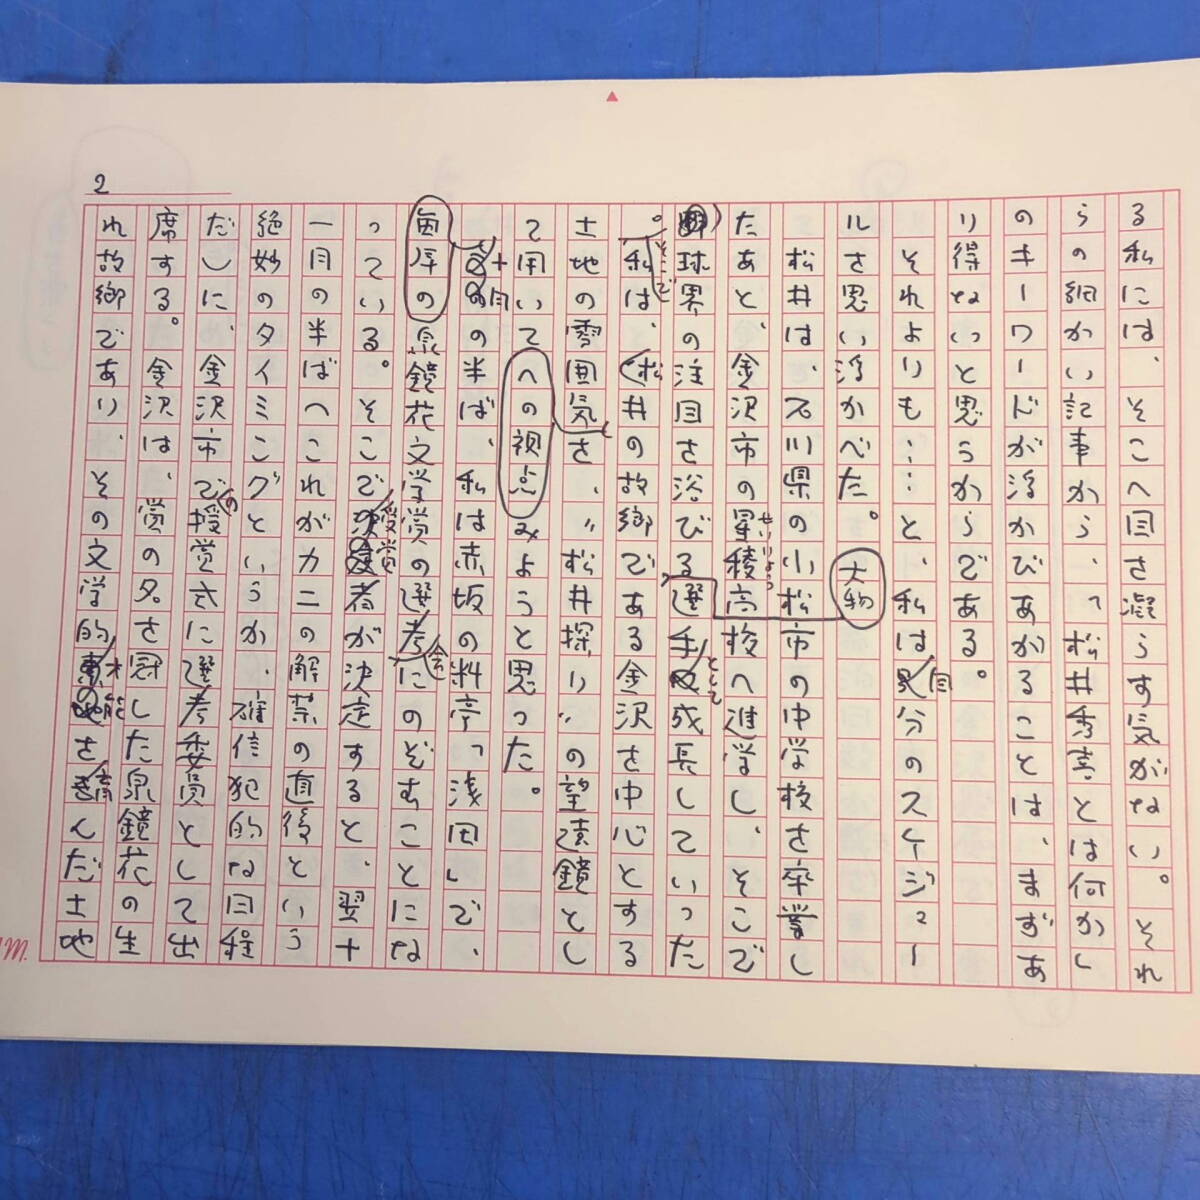 2
る私には、そこへ目を凝らす気がない。それ
らの細かい記事から、〝松井秀喜とは何かし
のキーワードが浮かびあがることは、まずあ
り得ないと思うからである。
それよりも……と、私は自分のスケジュー
ルを思い浮かべた。
松井は、石川県の小松市の中学校を卒業し
たあと、金沢市の星稜高校へ進学し、そこで
せいりょう
野球界の注目を浴びる大物選手として成長していった
。そこで私は、松井の故郷である金沢を中心とする
土地の雰囲気を、〝松井探り〟の望遠鏡とし
て用いてみようと思った。
への視点
十月の半ば、私は赤坂の料亭「浅田」で、
毎年の泉鏡花文学賞の選考会にのぞむことにな
っている。そこで受賞者が決定すると、翌十
一月の半ばへこれがカニの解禁の直後という
絶妙のタイミングというか、確信犯的な日程
だし)に、金沢市での授賞式に選考委員として出
席する。金沢は、賞の名を冠した泉鏡花の生
れ故郷であり、その文学的才能を育んだ土地